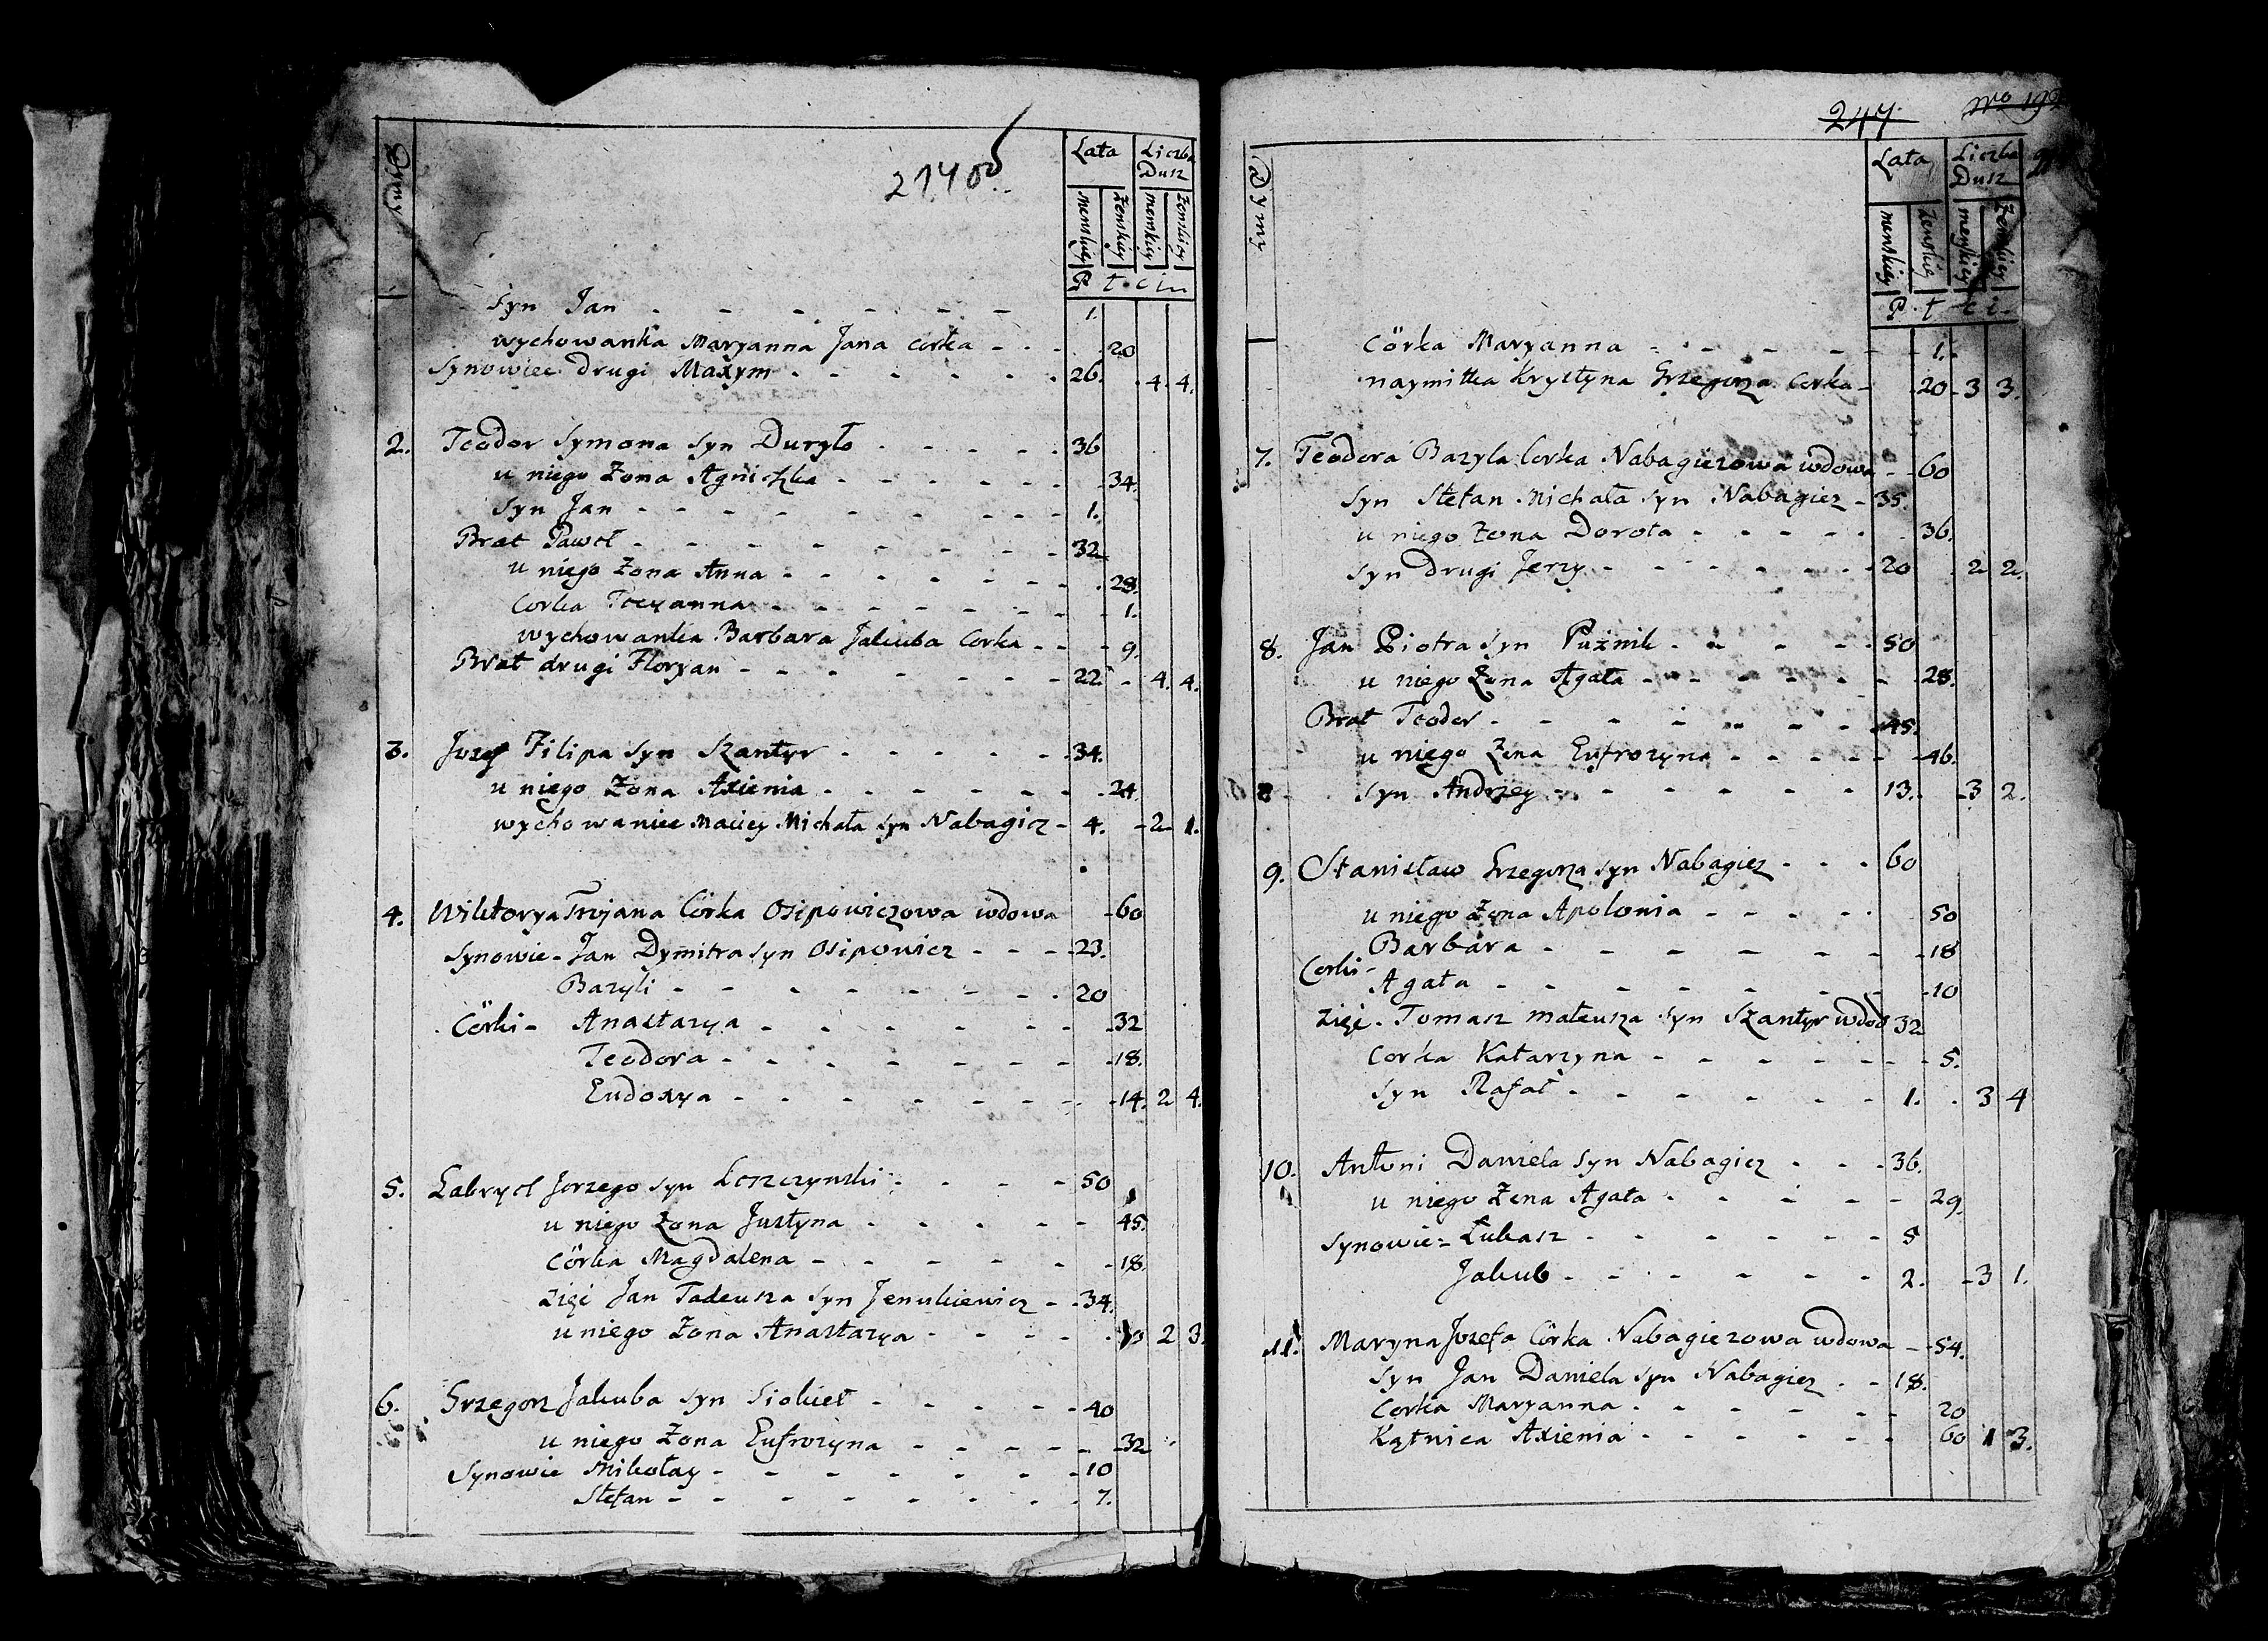 Dymy
Lata
Liczba Dusz
menskiey
żenskiey
menskiey
żenskiey
P t c i
Syn Jan - - - - - - 1.
wychowanka Maryanna Jana corka - - - 20
Synowiec drugi Maxym - - - - - - 26. 4. 4.
2. Teodor Symona Syn Duryło - - - - 36
u niego Żona Agniszka - - - - - - 34.
Syn Jan - - - - - - - 1.
Brat Paweł - - - - - - - 32
u niego Żona Anna - - - - - - - 28.
Corka - - - - - - - 1.
wychowanka Barbara Jakuba Corka - - - 9.
Brat drugi Floryan - - - - - - - 22. - 4. 4.
3. Jozef Filipa Syn Szantyr - - - - - 34.
u niego Żona Axienia - - - - - - 24.
wychowaniec Maciey Michała Syn Nabagiez - 4. - 2 - 1.
4. Wiktorya Trojana Córka Osipowiczowa wdowa - 60
Synowie - Jan Dymitra Syn Osipowicz - - - 23.
Bazyli - - - - - - - 20
Córki - Anastazya - - - - - - 32
Teodora - - - - - - - 18.
Eudoxya - - - - - - - 14. 2 4.
5. Gabryel Jerzego Syn Leszczynski - - - - 50
u niego Żona Justyna - - - - - 45.
Córka Magdalena - - - - - - 18.
Zięć Jan Tadeusza Syn Jenukiewicz - - 34.
u niego Żona Anastazya - - - - 2 3.
6. Grzegorz Jakuba Syn Siokieł - - - - - 40
u niego Żona Eufrozyna - - - - - 32
Synowie Mikołay - - - - - - - 10
Stefan - - - - - - - 7.
247.
No
Dymy
Lata
Liczba Dusz
menskiey
żenskiey
menskiey
żenskiey
P t c i
Córka Maryanna - - - - - - 1.
naymitka Krystyna Grzegorza Corka - 20 - 3 3.
7. Teodora Bazyla Corka Nabagiezowa wdowa - - 60
Syn Stefan Michała Syn Nabagiez - 35.
u niego Żona Dorota - - - - - 36.
Syn drugi Jerzy - - - - - - 20 2 2.
8. Jan Piotra Syn Puźnik - - - - 50
u niego Żona Agata - - - - - - 28.
Brat Teodor - - - - - - - 45.
u niego Żena Eufrozyna - - - - - 46.
Syn Andrzey - - - - - - 13. - 3 2.
9. Stanisław Grzegorza Syn Nabagiez - - - 60
u niego Żona Apolonia - - - - - 50
Barbara - - - - - - - 18
Corki -
Agata - - - - - - - 10
Zięć - Tomasz Mateusza Syn Szantyr wdo 32
Corka Katarzyna - - - - - - 5.
Syn Rafał - - - - - - 1. . 3 4
10. Antoni Daniela Syn Nabagiez - - - 36.
u niego Żena Agata - - - - - 29.
Synowie - Łukasz - - - - - - 5
Jakub - - - - - - 2. - 3 1.
11. Maryna Jozefa Córka Nabagiezowa wdowa - - 54.
Syn Jan Daniela Syn Nabagiez - - 18.
Corka Maryanna - - - - - - 20
Kątnica Axienia - - - - - - 60 1 3.